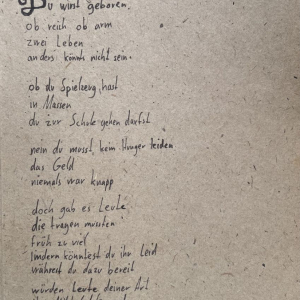 Du wirst geboren.
ob reich ob arm
zwei Leben
anders könnts nicht sein.
ob du Spielzeug hast
in Massen
du zur Schule gehen darfst
nein du musst, kein Hunger leiden
das Geld
niemals war knapp
doch gab es Leute
die tragen mussten
früh zu viel
lindern könntest du ihr Leid
währest du dazu bereit
würden Leute deiner Art